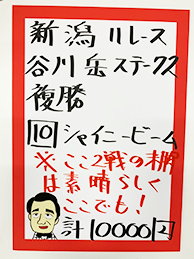 新潟11レース
谷川岳ステークス
複勝
10 シャイニービーム
※ここ2戦の末脚
は素晴らしく
ここでも!
計10000円